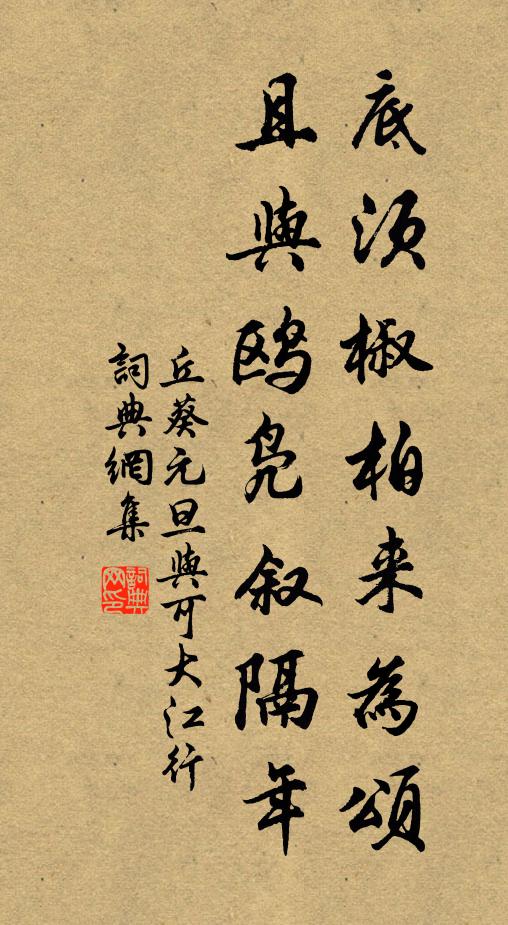 底須椒柏来為頌
且與鸥凫叙隔年
丘葵元旦與可大江行
詞典網集
詞典网印